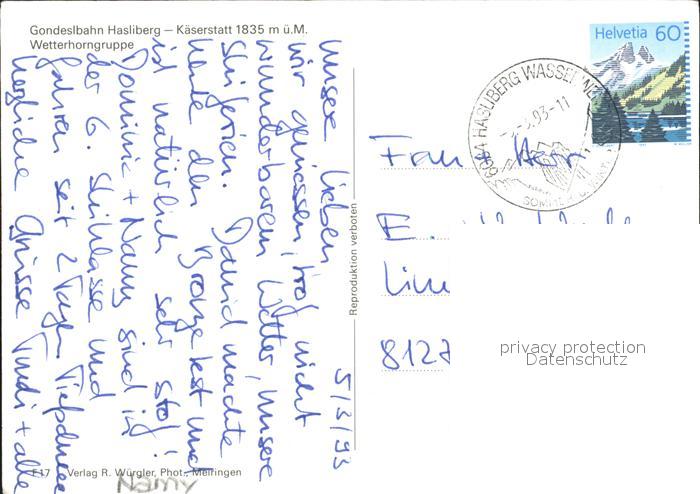 Gondeslbahn Hasliberg – Käserstatt 1835 m ü.M.
Wetterhorngruppe
Helvetia 60
6084 HASLIBERG WASSERWENDI
.93-11
5/3/93
Unsere Lieben,
wir geniessen, trotz nicht
wunderbarem Wetter, unsere
Skiferien. David machte
heute den Bronze test und
ist natürlich sehr stolz!
Dominic + Namy sind in
der 6. Skiklasse und
fahren seit 2 Tagen Tiefschnee
herzliche Grüsse Trudi + alle
Frau + Herr
E.
8127
Reproduktion verboten
privacy protection
Datenschutz
E17 Verlag R. Würgler, Phot., Meiringen
Namy